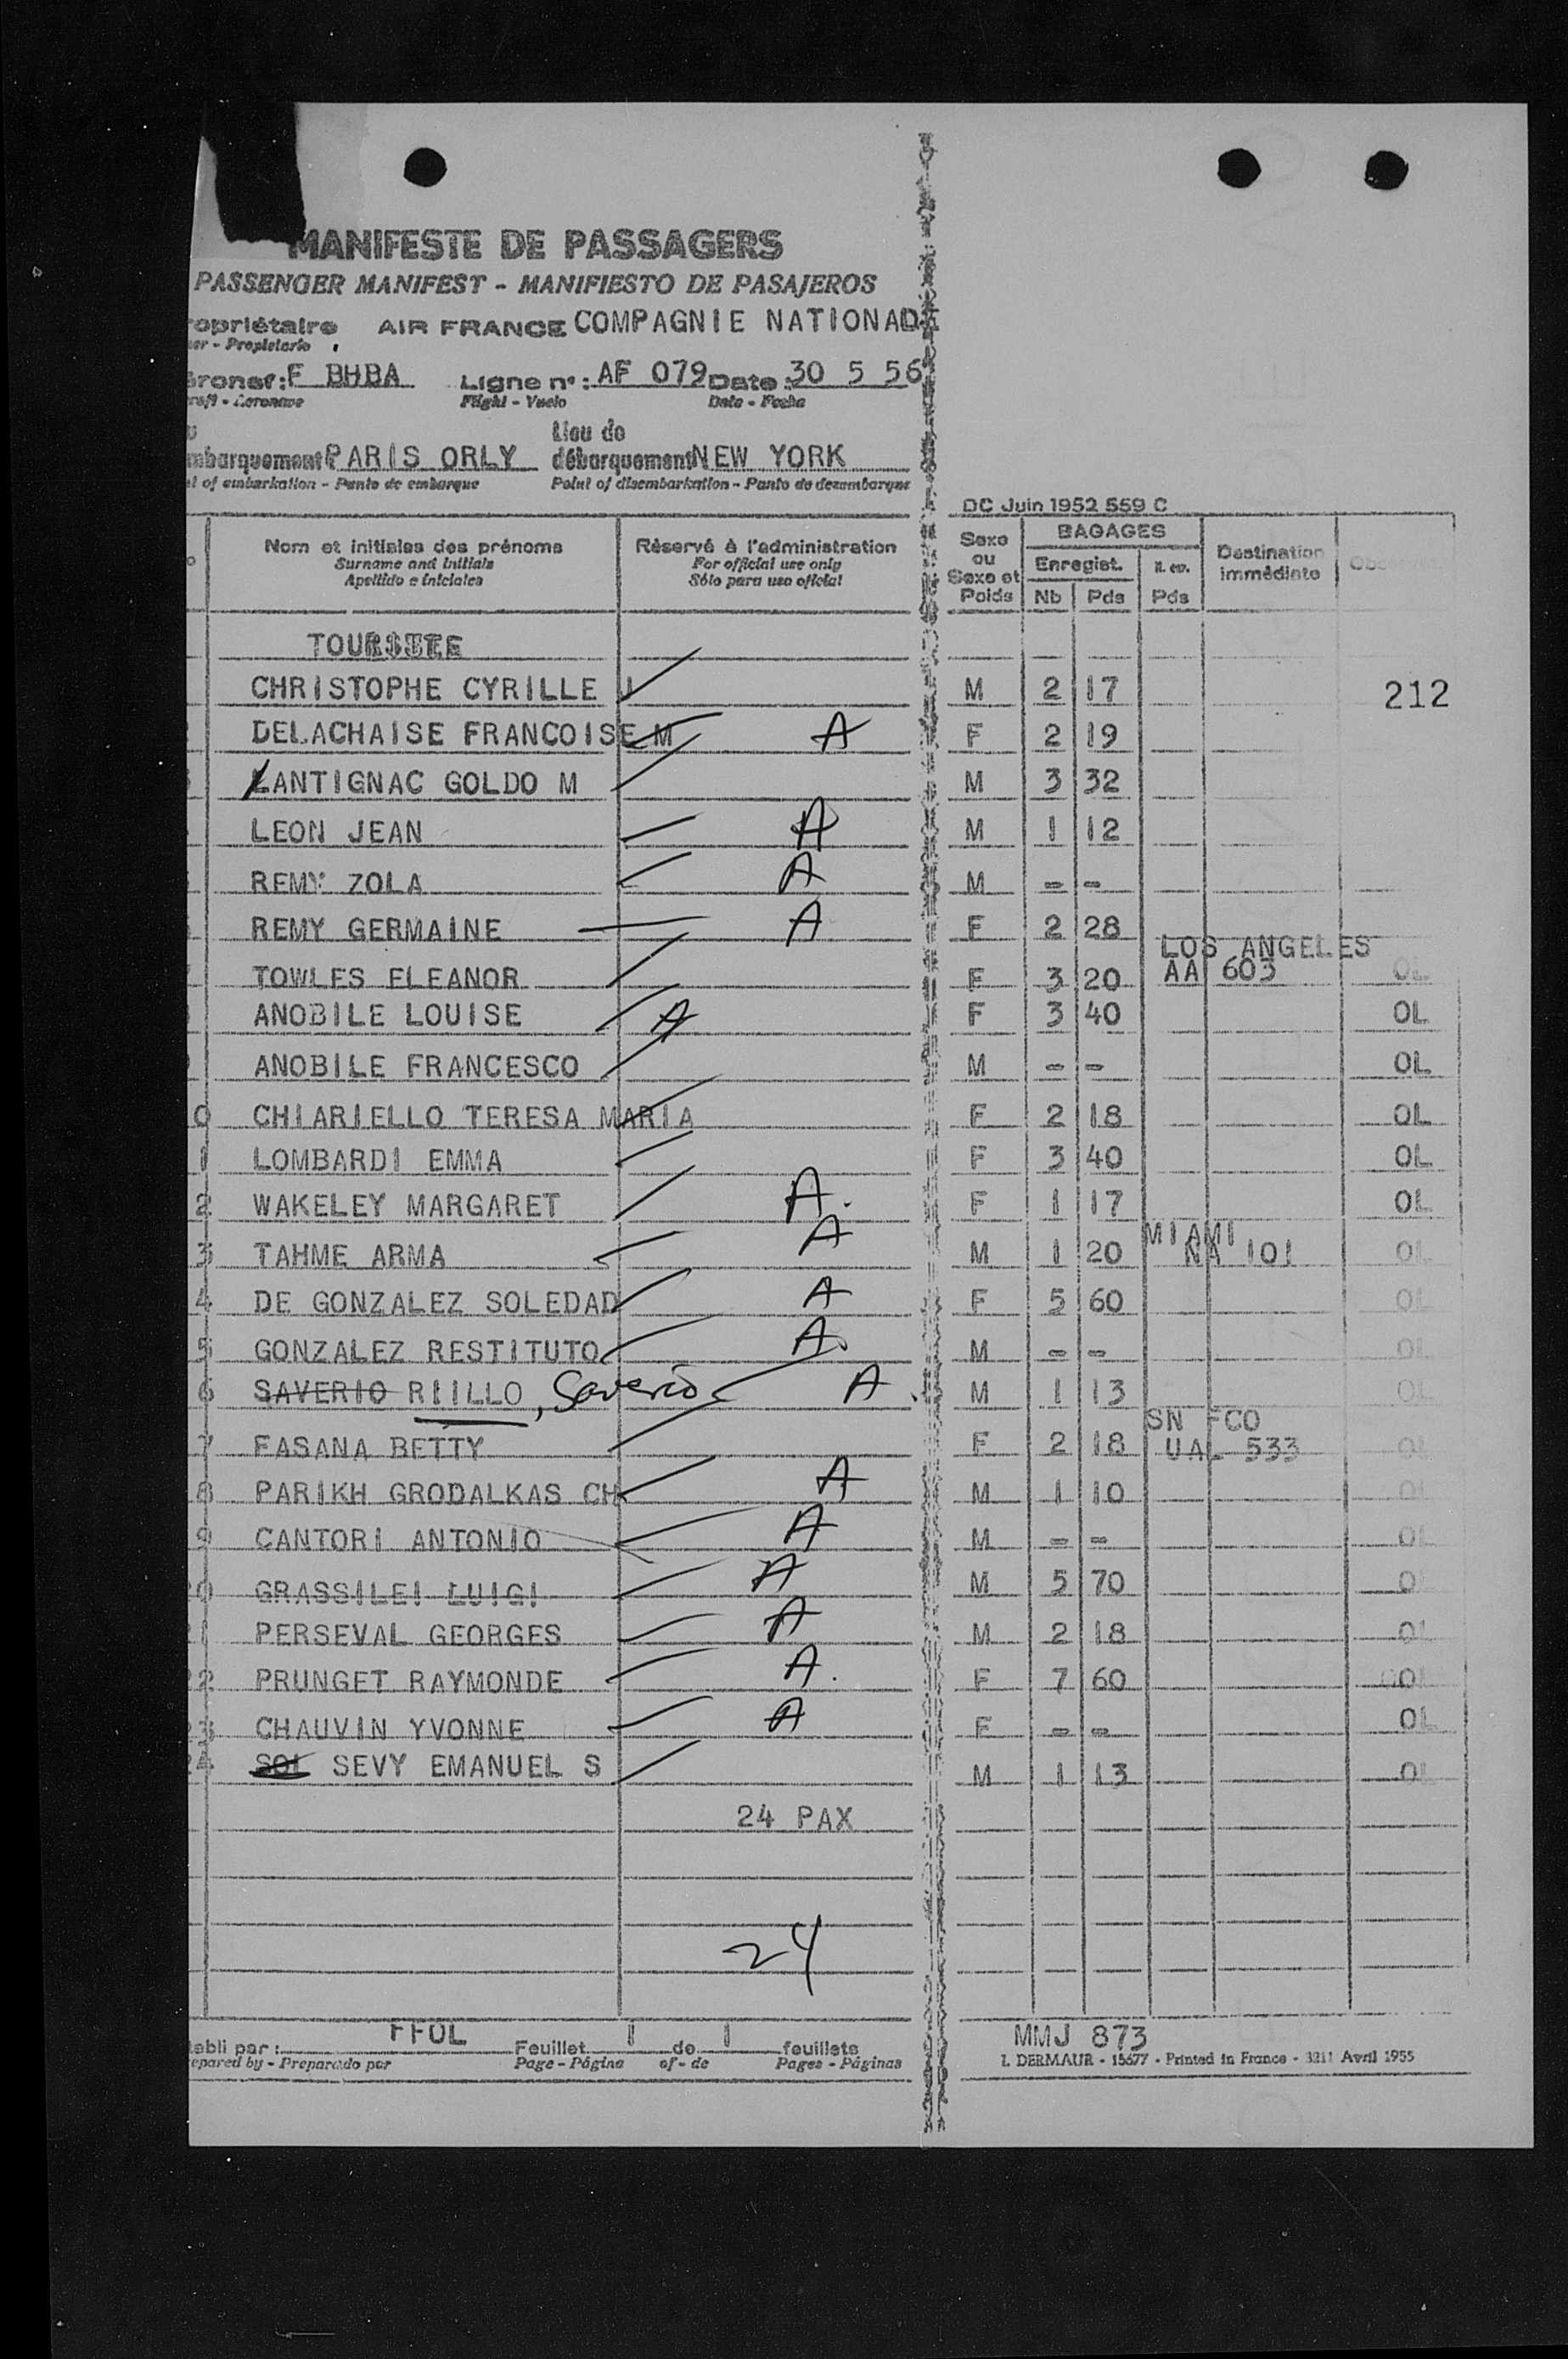 MANIFESTE DE PASSAGERS
PASSENGER MANIFEST - MANIFIESTO DE PASAJEROS
opriétaire AIR FRANCE COMPAGNIE NATIONAD
er - Propietario
éronef: F BHBA Ligne n°: AF 079 Date: 30 5 56
raft - Aeronave Flight - Vuelo Date - Fecha
Lieu de
mbarquement PARIS ORLY débarquement NEW YORK
t of embarkation - Punto de embarque Point of disembarkation - Punto de desembarque
DC Juin 1952 559 C
Nom et initiales des prénoms Réservé à l'administration Sexe ou Sexe et Poids BAGAGES Destination immédiate
Surname and initials For official use only Enregist. N. en.
Apellido e iniciales Sólo para uso oficial Nb Pds Pds
TOURISTE
CHRISTOPHE CYRILLE J M 2 17 212
DELACHAISE FRANCOISE M A F 2 19
LANTIGNAC GOLDO M M 3 32
LEON JEAN A M 1 12
REMY ZOLA A M - -
REMY GERMAINE A F 2 28
LOS ANGELES
TOWLES ELEANOR F 3 20 AA 603 OL
ANOBILE LOUISE A F 3 40 OL
ANOBILE FRANCESCO M - - OL
0 CHIARIELLO TERESA MARIA F 2 18 OL
1 LOMBARDI EMMA F 3 40 OL
2 WAKELEY MARGARET A. F 1 17 OL
MIAMI
3 TAHME ARMA A M 1 20 NA 101 OL
4 DE GONZALEZ SOLEDAD A F 5 60 OL
5 GONZALEZ RESTITUTO A. M - - OL
6 SAVERIO RIILLO, Saverio A M 1 13 OL
SN FCO
7 FASANA BETTY F 2 18 UAL 533 OL
8 PARIKH GRODALKAS CH A M 1 10 OL
9 CANTORI ANTONIO A M - - OL
20 GRASSILEI LUIGI A M 5 70 O
21 PERSEVAL GEORGES A M 2 18 OL
22 PRUNGET RAYMONDE A. F 7 60 OL
23 CHAUVIN YVONNE A F - - OL
24 SOL SEVY EMANUEL S M 1 13 OL
24 PAX
24
tabli par: FFOL Feuillet 1 de 1 feuillets MMJ 873
epared by - Preparado por Page - Página of - de Pages - Páginas I. DERMAUR - 15677 - Printed in France - 3211 Avril 1955